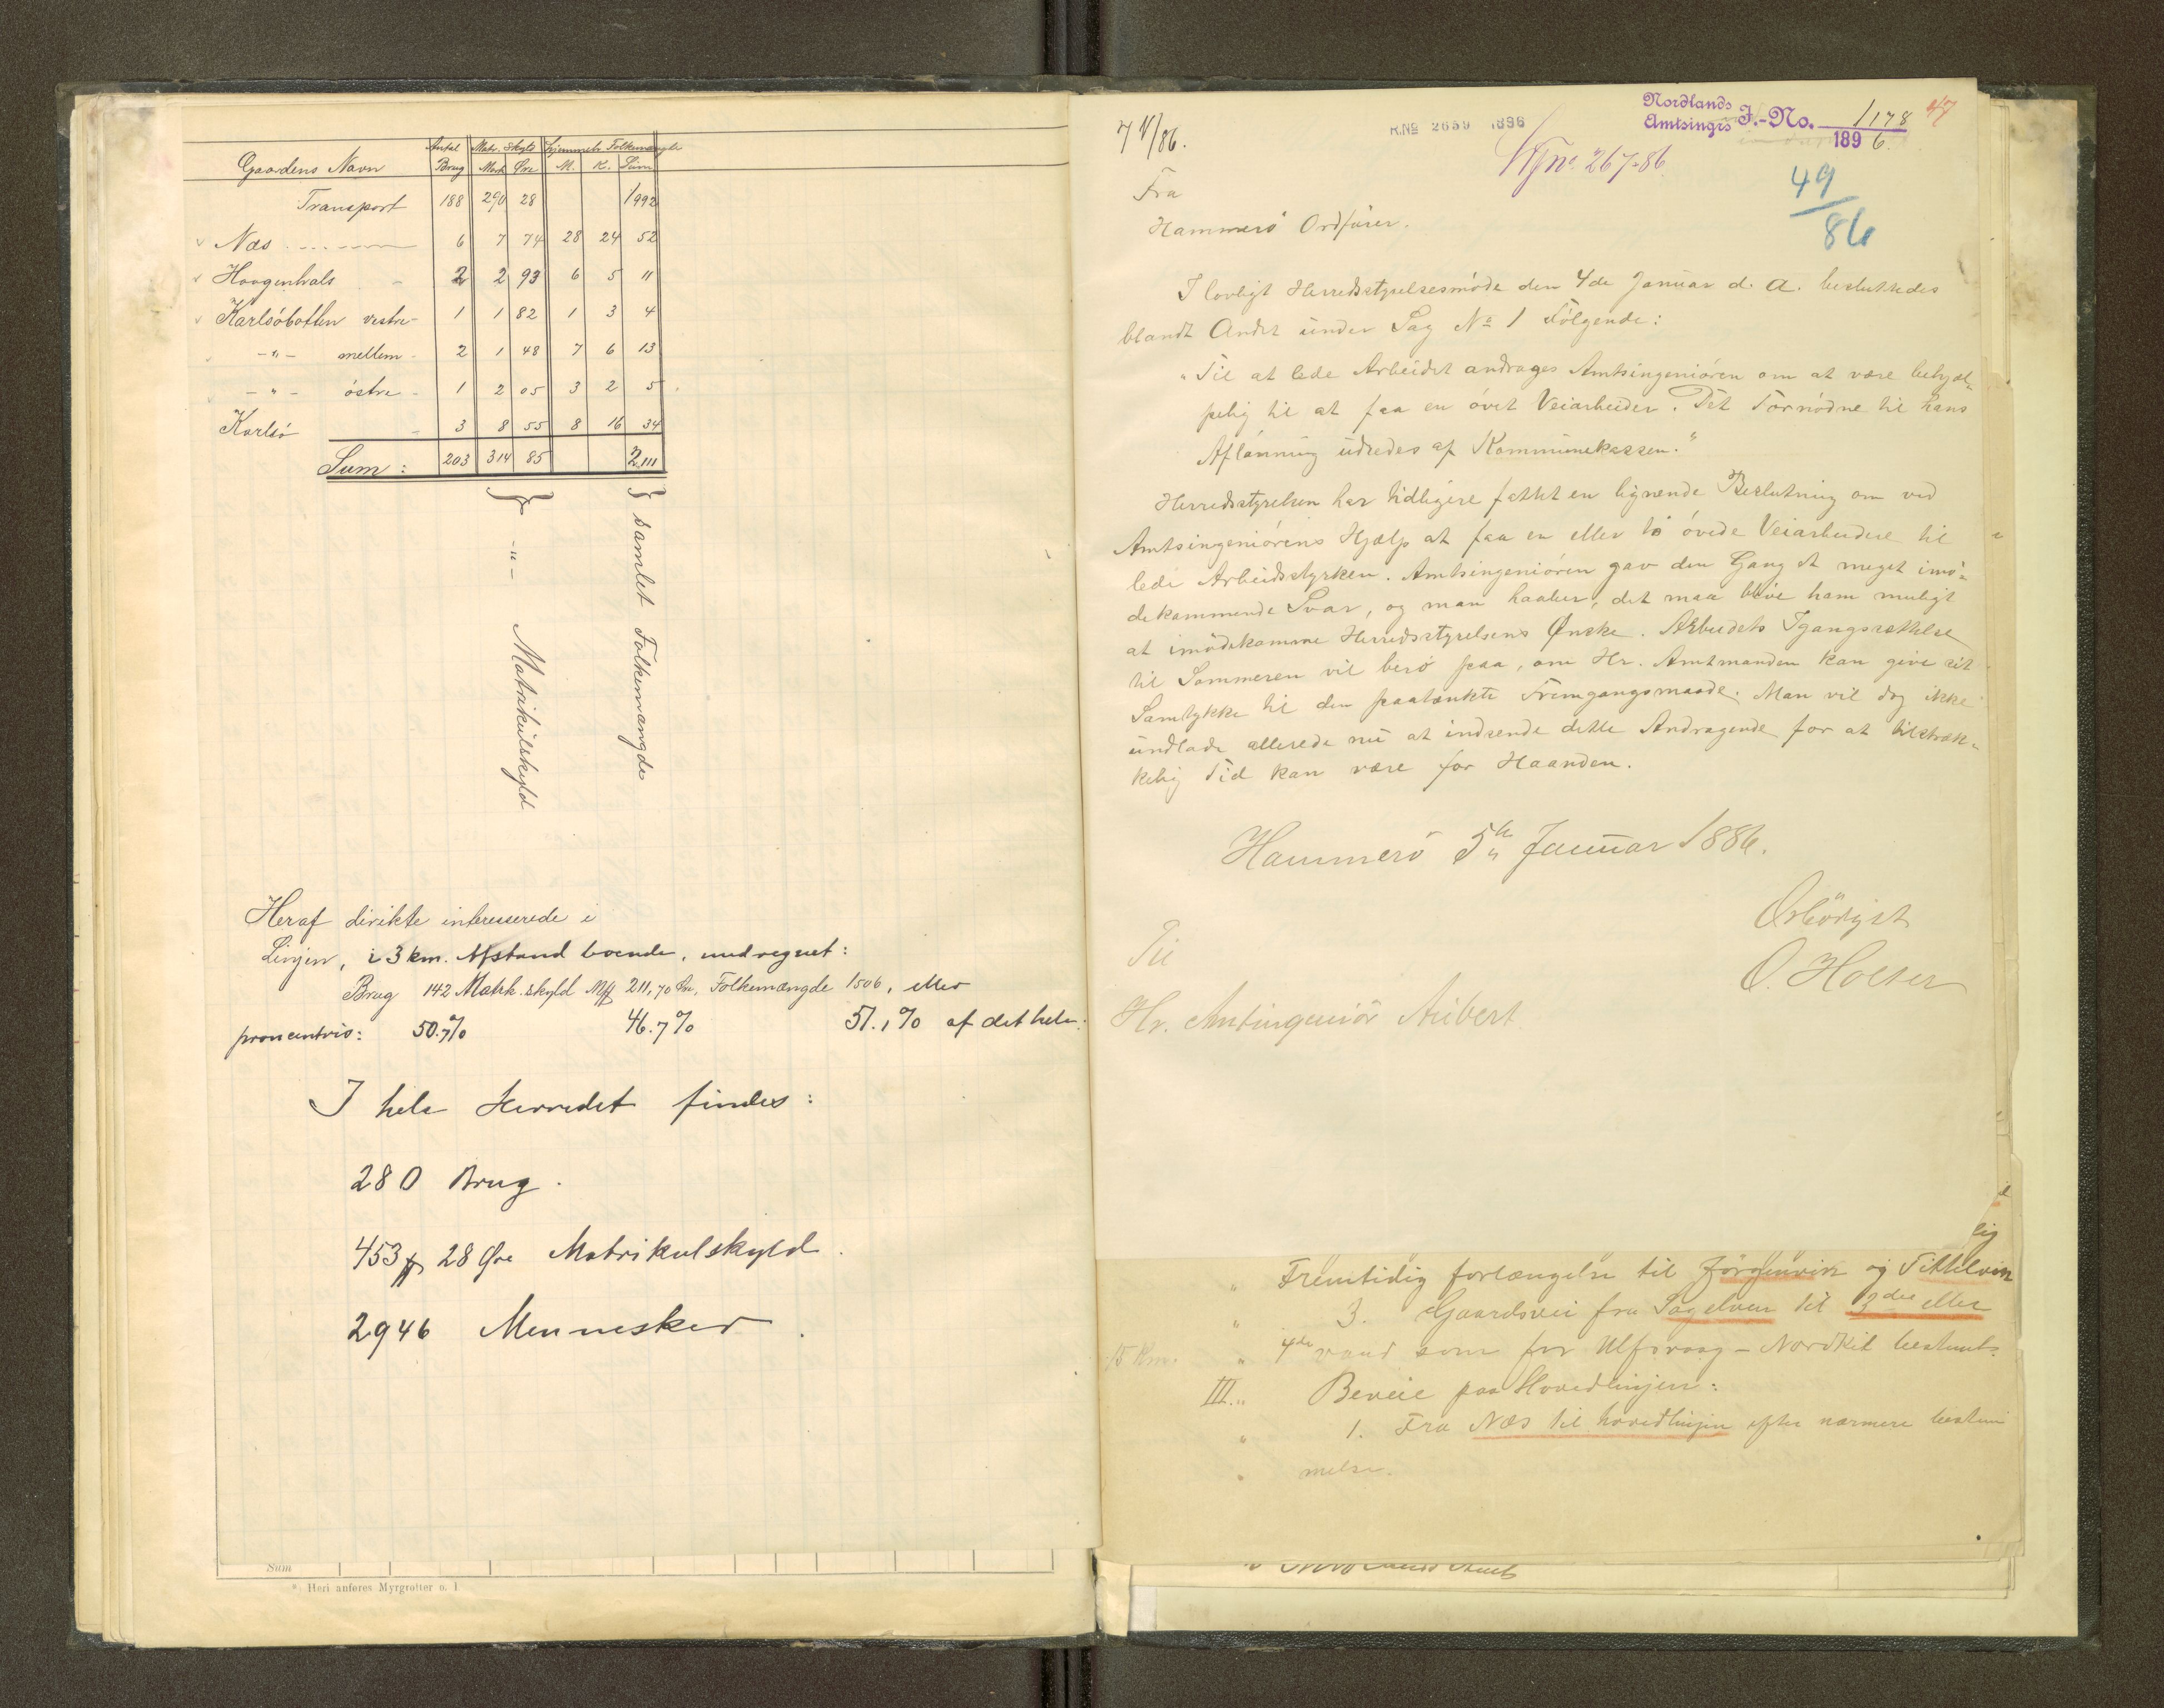 Gaardens Navn | Antal Brug | Matr. Skyld Mark Øre | Hjemmeh. Folkemængde M. K. Sum
Transport 188 290 28 1992
Næs 6 7 74 28 24 52
Haagenhals 2 2 93 6 5 11
Karlsöbotten vestre 1 1 82 1 3 4
-"- mellem 2 1 48 7 6 13
-"- östre 1 2 05 3 2 5
Karlsö 3 8 55 8 16 34
Sum: 203 314 85 2111
} samlet Folkemængde
} -"- Matrikulskyld
Heraf direkte interesserede i
Linjen, i 3 km. Afstand boende, undregnet:
Brug 142 Matrk. skyld Mk 211,70 Øre, Folkemængde 1506, eller
procentvis: 50.7% 46.7% 51.1% af det hele.
I hele Herredet findes:
280 Brug.
453 28 Øre Matrikulskyld.
2946 Mennesker.
Sum
*) Heri anføres Myrgrøfter o. l.
7 V/86.
R.No 2659 1896
Nordlands
Amtsingrs J.-No. 1178
1896.
47
No. 267-86.
49
86
Fra
Hammerö Ordförer.
I lovligt Herredsstyrelsesmöde den 4de Januar d. A. besluttedes
blandt Andet under Sag No 1 Fölgende:
"Til at lede Arbeidet andrages Amtsingeniören om at være behjæl-
pelig til at faa en övet Veiarbeider. Det Fornödne til hans
Aflönning udredes af Kommunekassen."
Herredsstyrelsen har tidligere fattet en lignende Beslutning om ved
Amtsingeniörens Hjælp at faa en eller to övede Veiarbeidere til
lede Arbeidsstyrken. Amtsingeniören gav den Gang et meget imö-
dekommende Svar, og man haaber, det maa blive ham muligt
at imödekomme Herredsstyrelsens Ønske. Arbeidets Igangsættelse
til Sommeren vil bero paa, om Hr. Amtmanden kan give sit
Samtykke til den paatænkte Fremgangsmaade. Man vil dog ikke
undlade allerede nu at indsende dette Andragende for at tilstræk-
kelig Tid kan være for Haanden.
Hammerö 5te Januar 1886.
Ørbödigst
O. Holter
Til
Hr. Amtingeniör Aubert
lig
" Fremtidig forlængelse til Jörgenvik og Tittelvik
" 3. Gaardsvei fra Sagelven til 3die eller
15 Km. " 4de vand som for Ulfsvaag - Nordkil bestemt.
III. " Biveie paa Hovedlinjen:
" 1. Fra Næs til hovedlinjen efter nærmere bestem
" melse.
Nordlands Amt